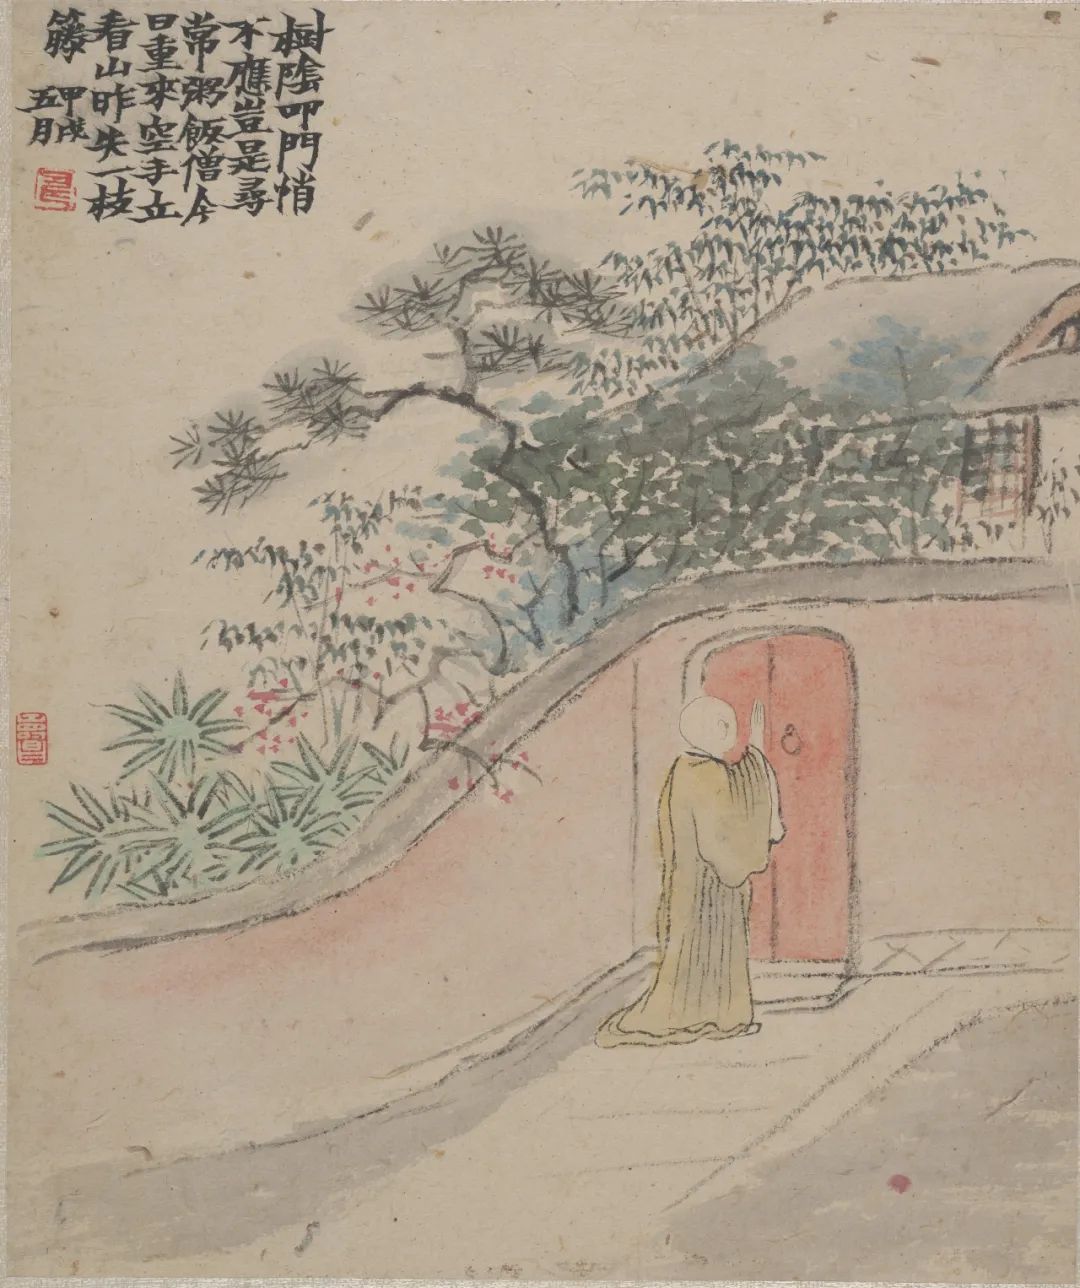 樹陰叩門悄
不應豈是尋
常粥飯僧今
日重來空手立
看山昨失一枝
籐
甲戌
五月